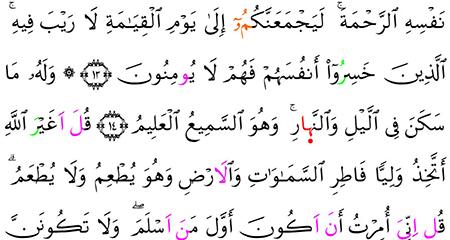 نَفْسِهِ الرَّحْمَةَ ۚ لَيَجْمَعَنَّكُمُۥٓ إِلَىٰ يَوْمِ الْقِيَـٰمَةِ لَا رَيْبَ فِيهِ ۚ
الَّذِينَ خَسِرُوٓا أَنفُسَهُمْ فَهُمْ لَا يُومِنُونَ ﴿١٣﴾ ۞ وَلَهُۥ مَا
سَكَنَ فِى الَّيْلِ وَالنَّهارِ ۚ وَهُوَ السَّمِيعُ الْعَلِيمُ ﴿١٤﴾ قُلَ اَغَيْرَ اللَّهِ
أَتَّخِذُ وَلِيًّا فَاطِرِ السَّمَـٰوَٰتِ وَالَارْضِ وَهُوَ يُطْعِمُ وَلَا يُطْعَمُ ۗ
قُلِ اِنِّىَ أُمِرْتُ أَنَ اَكُونَ أَوَّلَ مَنَ اَسْلَمَ ۖ وَلَا تَكُونَنَّ